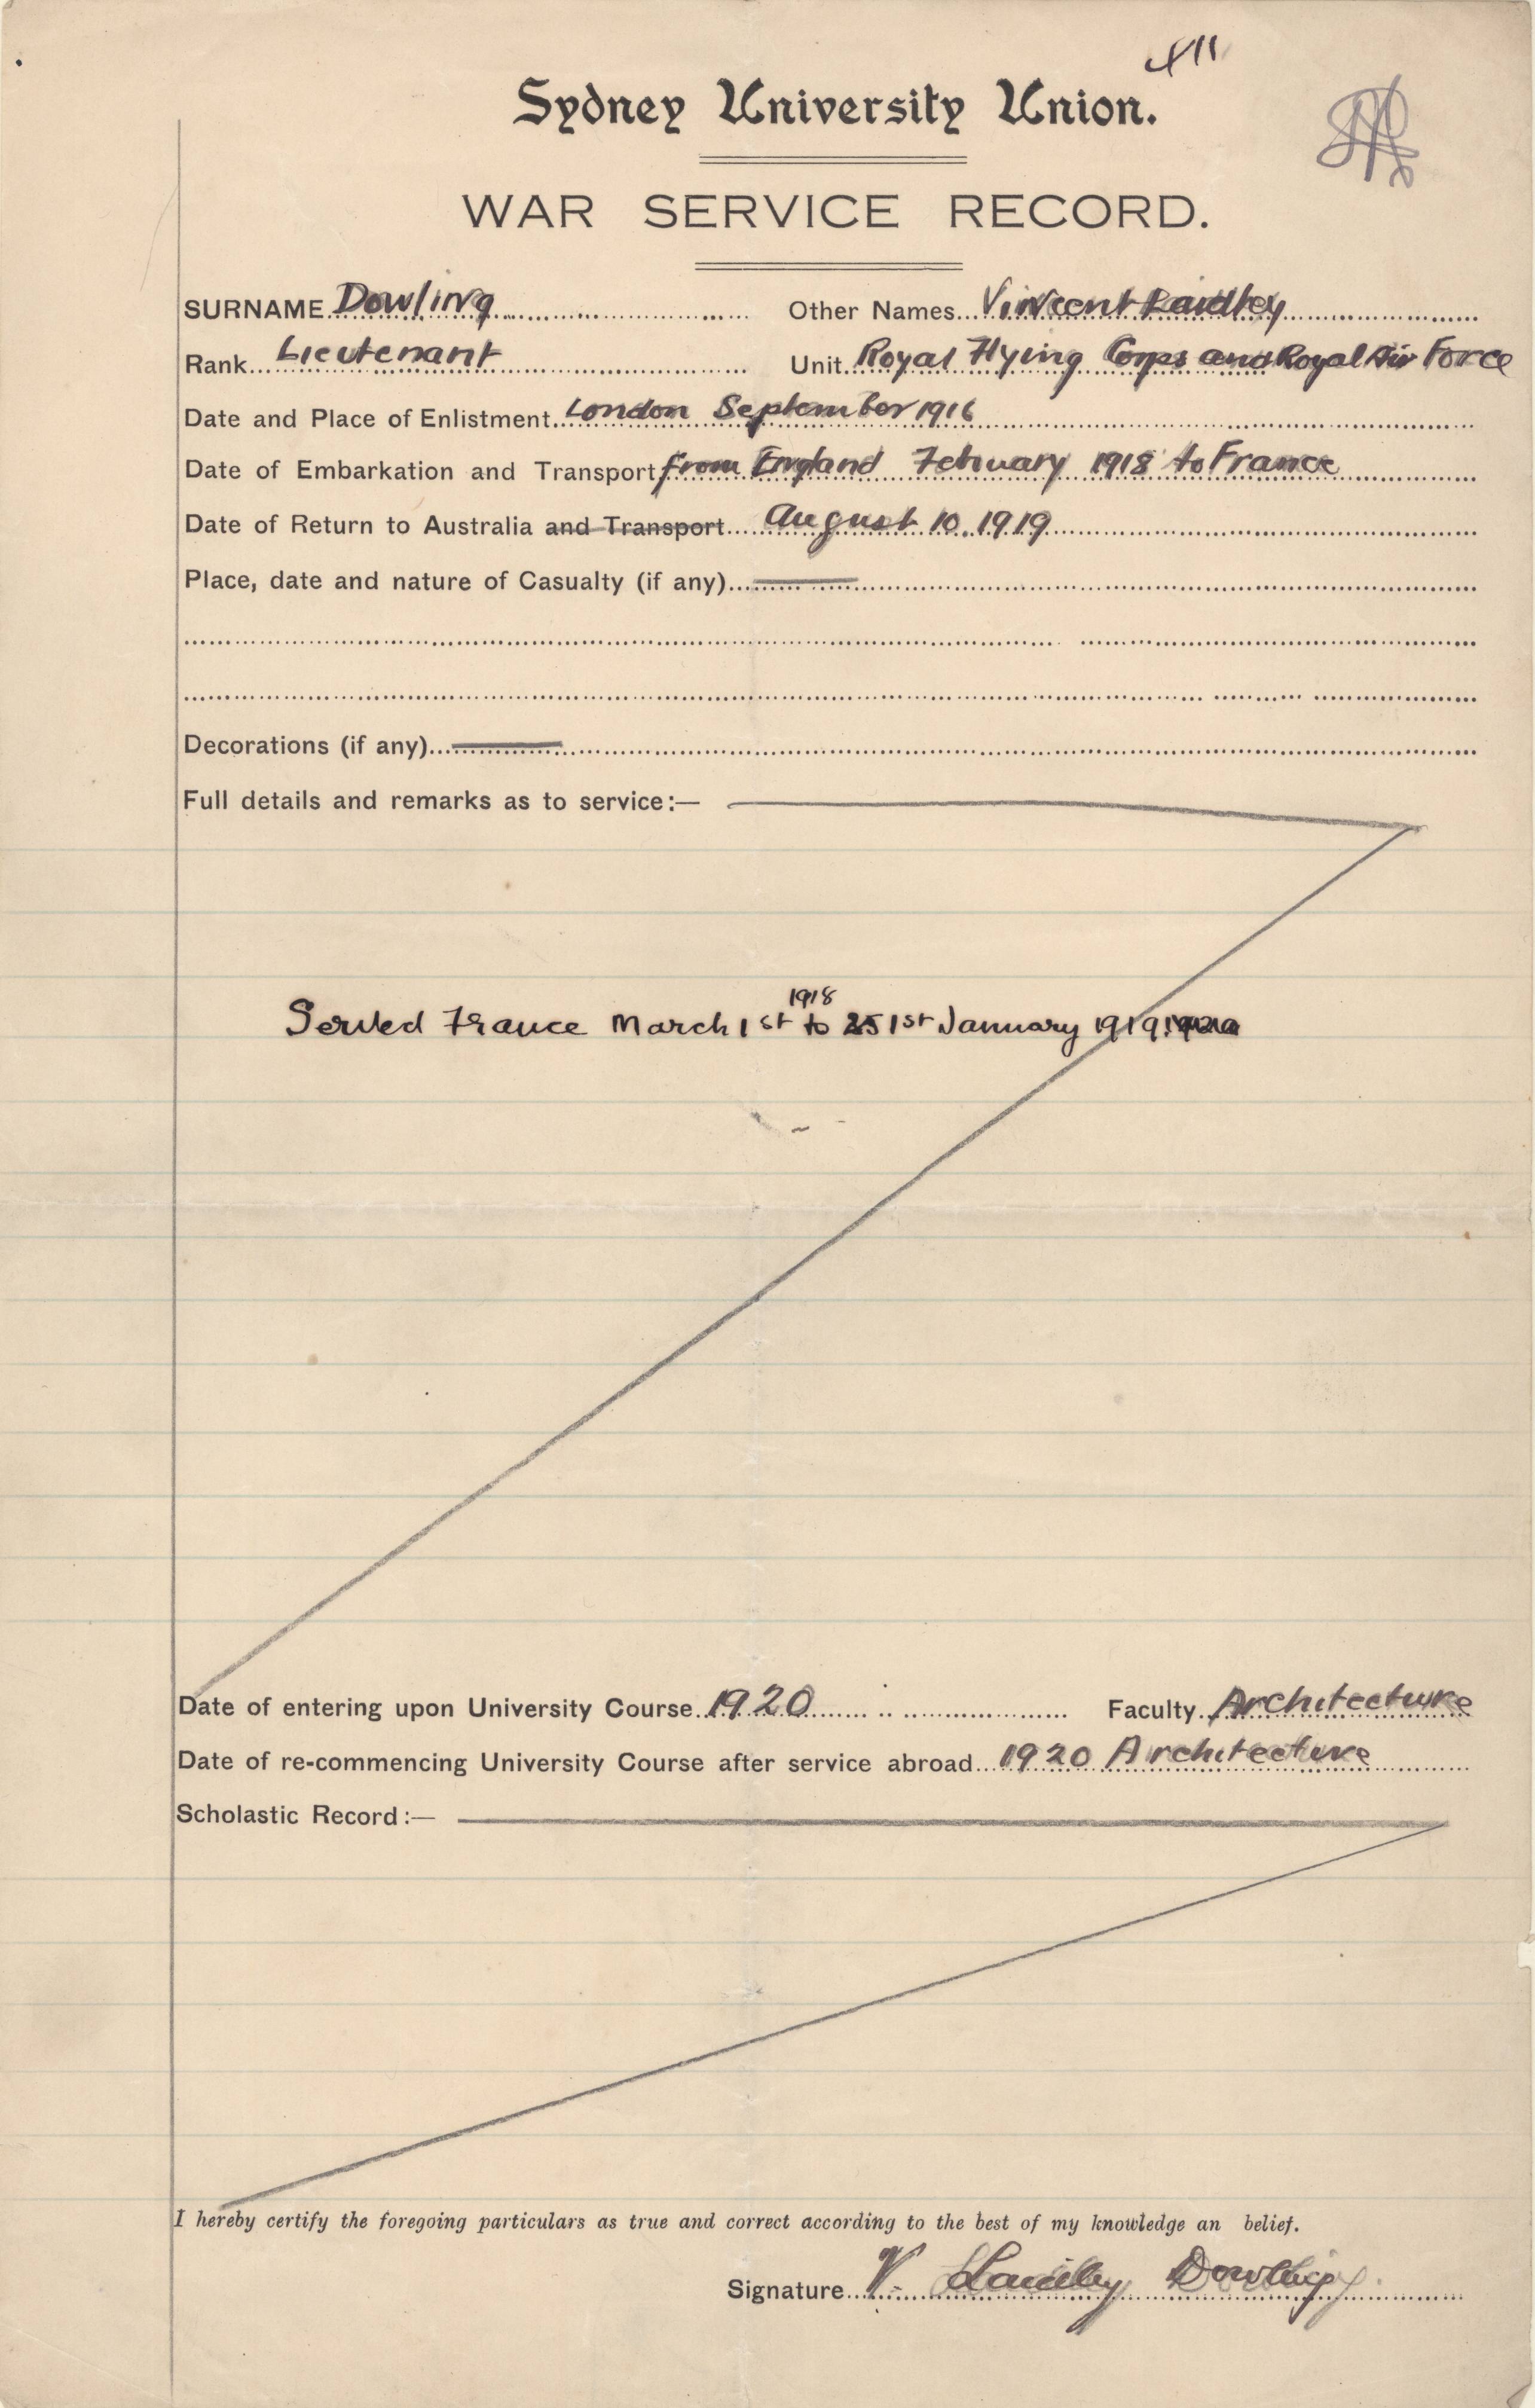 Sydney University Union.
WAR SERVICE RECORD.
SURNAME Dowling Other Names Vincent Laidley
Rank Lieutenant Unit Royal Flying Corps and Royal Air Force
Date and Place of Enlistment London September 1916
Date of Embarkation and Transport from England February 1918 to France
Date of Return to Australia and Transport August 10. 1919
Place, date and nature of Casualty (if any)
Decorations (if any)
Full details and remarks as to service:—
1918
Served France March 1st to 1st January 1919
Date of entering upon University Course 1920 Faculty Architecture
Date of re-commencing University Course after service abroad 1920 Architecture
Scholastic Record:—
I hereby certify the foregoing particulars as true and correct according to the best of my knowledge an belief.
Signature V. Laidley Dowling